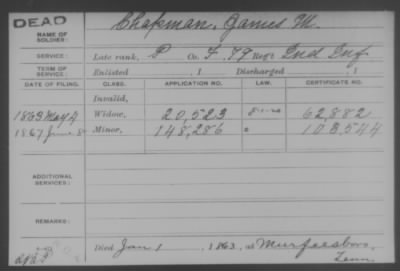 DEAD
NAME OF SOLDIER: Chapman, James M.
SERVICE: Late rank, P Co. F, 79 Reg't Ind Inf
TERM OF SERVICE: Enlisted , 1 Discharged , 1
DATE OF FILING. CLASS. APPLICATION NO. LAW. CERTIFICATE NO.
Invalid,
1863 May 4 Widow, 20,523 62,882
1867 June 8 Minor, 148,286 103,544
ADDITIONAL SERVICES:
REMARKS:
Died Jan 1, 1863, at Murfeesboro,
Tenn